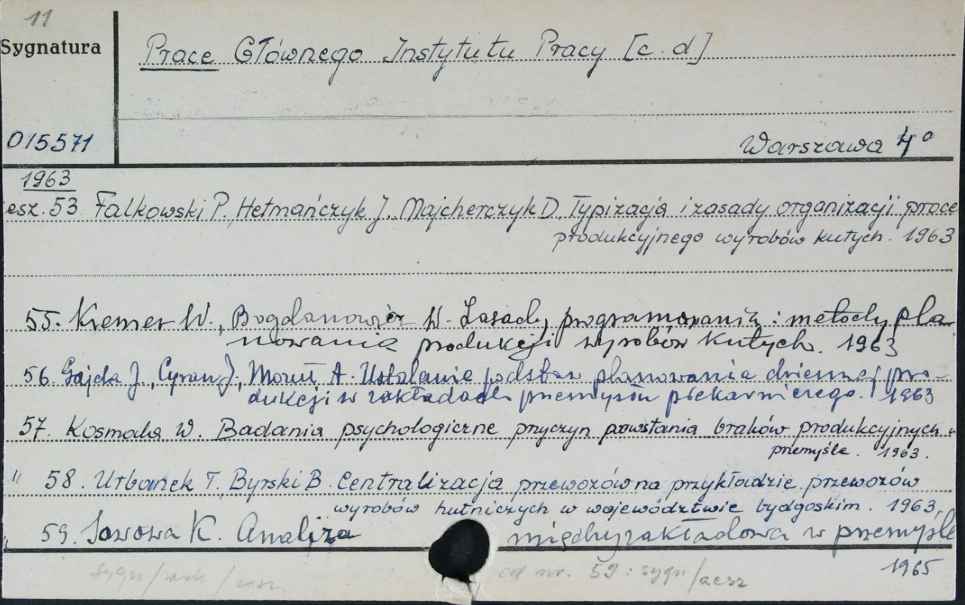 11
Sygnatura
Prace Głównego Instytutu Pracy [c.d]
015571
Warszawa 4°
1963
esz. 53 Falkowski P., Hetmańczyk J., Majcherczyk D. Typizacja i zasady organizacji prace
produkcyjnego wyrobów kutych. 1963
55. Kremer W., Bogdanowicz W. Zasady programowania i metody pla
nowania produkcji wyrobów kutych. 1963
56. Gajda J., Cyran J., A. Ustalanie podstaw planowania dziennej pro-
dukcji w zakładach przemysłu piekarniczego. 1963
57. Kosmala W. Badania psychologiczne przyczyn powstania braków produkcyjnych w
przemyśle. 1963.
" 58. Urbanek T., Byrski B. Centralizacja przewozów na przykładzie przewozów
wyrobów hutniczych w województwie bydgoskim. 1963,
" 59. Sowowa K. Analiza międzyzakładowa w przemyśle
1965
od nr. 59: sygn/aesz